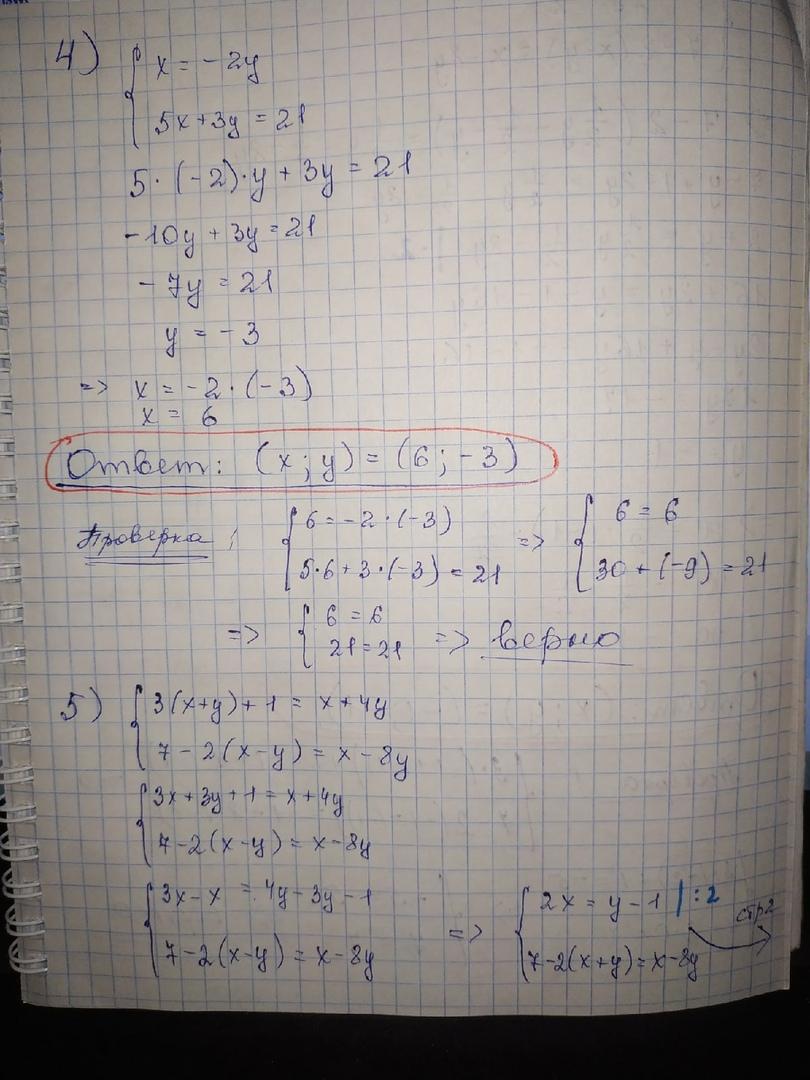 4) { x = -2y
5x+3y = 21
5·(-2)·y + 3y = 21
-10y + 3y = 21
-7y = 21
y = -3
=> x = -2·(-3)
x = 6
Ответ: (x; y) = (6; -3)
Проверка: { 6 = -2·(-3) => { 6 = 6
5·6 + 3·(-3) = 21 30 + (-9) = 21
=> { 6 = 6
21 = 21 => верно
5) { 3(x+y)+1 = x+4y
7-2(x-y) = x-8y
{ 3x+3y+1 = x+4y
7-2(x-y) = x-8y
{ 3x-x = 4y-3y-1 => { 2x = y-1 | :2 стр2
7-2(x-y) = x-8y 7-2(x+y) = x-8y